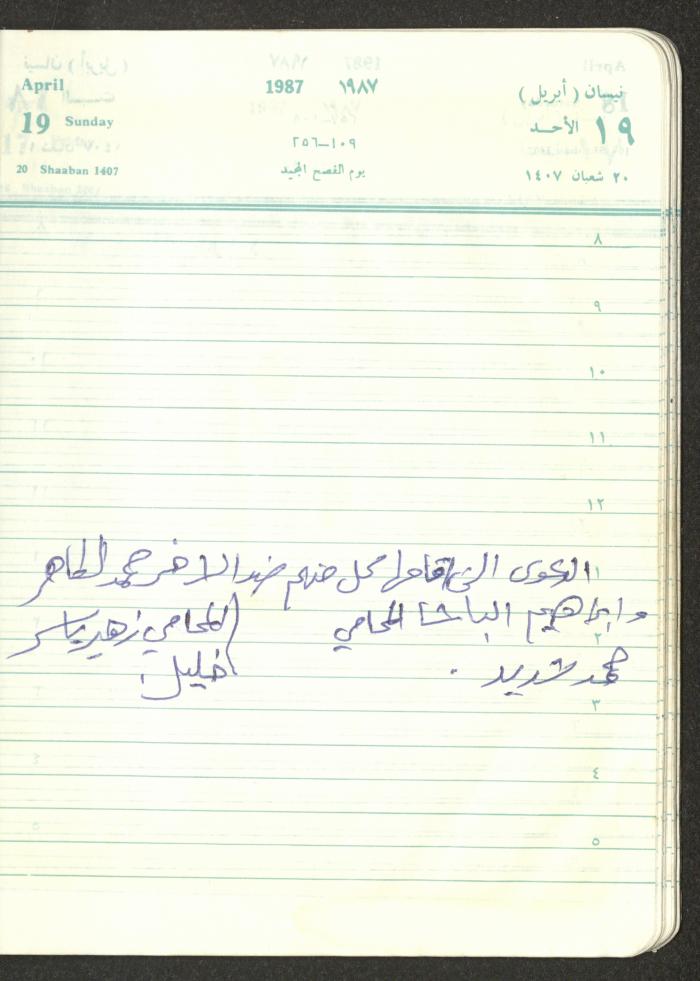 April 1987 ١٩٨٧ نيسان (أبريل)
19 Sunday ١٩ الأحد
١٠٩–٢٥٦
20 Shaaban 1407 يوم الفصح المجيد ٢٠ شعبان ١٤٠٧
٨
٩
١٠
١١
١٢
١
الدعوى التي اقامها كل منهم ضد الاخر محمد الطاهر
وابراهيم الباشا المحامي (المحامي زهير ياسر
٢
محمد شديد . خليل.
٣
٤
٥